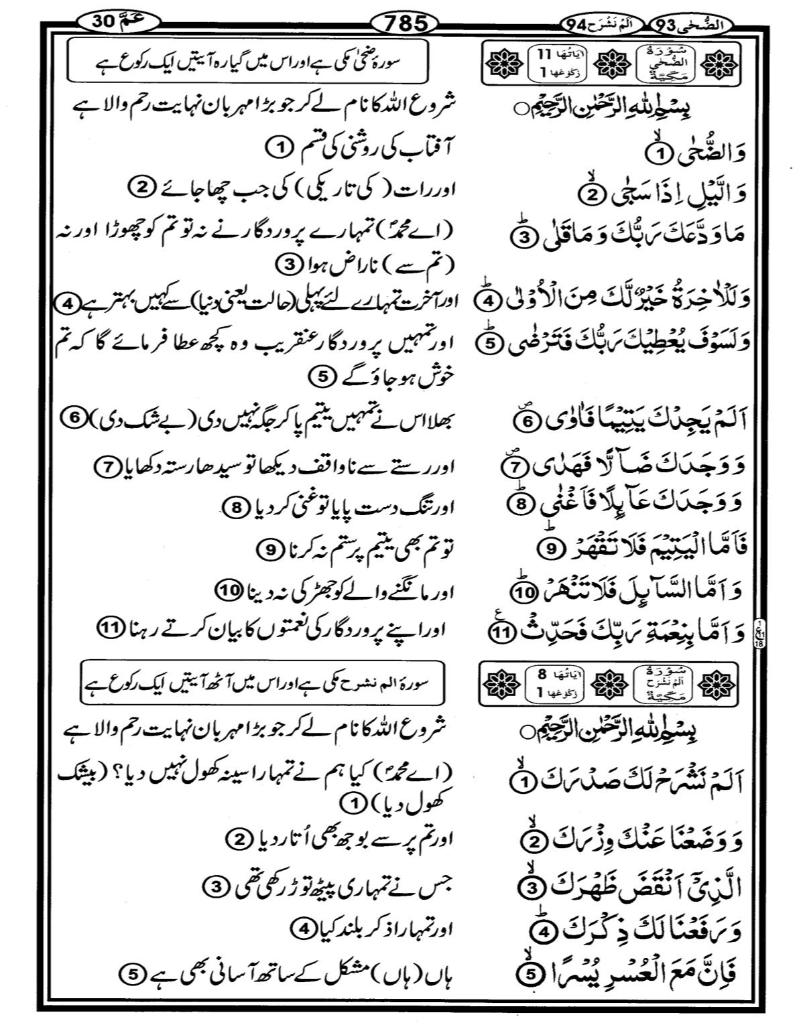 الضُّحٰی 93 اَلَمْ نَشْرَحْ 94 785 عَمَّ 30
سُوْرَةُ الضُّحٰی مَکِّیَّةٌ اٰیَاتُهَا 11 رُکُوْعُهَا 1 سورۂ ضحیٰ مکی ہے اور اس میں گیارہ آیتیں ایک رکوع ہے
بِسْمِ اللّٰهِ الرَّحْمٰنِ الرَّحِیْمِ○ شروع اللہ کا نام لے کر جو بڑا مہربان نہایت رحم والا ہے
وَالضُّحٰی ۙ1 آفتاب کی روشنی کی قسم 1
وَالَّیْلِ اِذَا سَجٰی ۙ2 اور رات (کی تاریکی) کی جب چھا جائے 2
مَا وَدَّعَكَ رَبُّكَ وَمَا قَلٰی ؕ3 (اے محمدؐ) تمہارے پروردگار نے نہ تو تم کو چھوڑا اور نہ
(تم سے) ناراض ہوا 3
وَلَلْاٰخِرَةُ خَیْرٌ لَّكَ مِنَ الْاُوْلٰی ؕ4 اور آخرت تمہارے لئے پہلی (حالت یعنی دنیا) سے کہیں بہتر ہے 4
وَلَسَوْفَ یُعْطِیْكَ رَبُّكَ فَتَرْضٰی ؕ5 اور تمہیں پروردگار عنقریب وہ کچھ عطا فرمائے گا کہ تم
خوش ہو جاؤ گے 5
اَلَمْ یَجِدْكَ یَتِیْمًا فَاٰوٰی ۪6 بھلا اس نے تمہیں یتیم پا کر جگہ نہیں دی (بے شک دی) 6
وَوَجَدَكَ ضَآلًّا فَهَدٰی ۪7 اور رستے سے ناواقف دیکھا تو سیدھا رستہ دکھایا 7
وَوَجَدَكَ عَآىِٕلًا فَاَغْنٰی ؕ8 اور تنگ دست پایا تو غنی کر دیا 8
فَاَمَّا الْیَتِیْمَ فَلَا تَقْهَرْ ؕ9 تو تم بھی یتیم پر ستم نہ کرنا 9
وَاَمَّا السَّآىِٕلَ فَلَا تَنْهَرْ ؕ10 اور مانگنے والے کو جھڑکی نہ دینا 10
وَاَمَّا بِنِعْمَةِ رَبِّكَ فَحَدِّثْ ۧ11 اور اپنے پروردگار کی نعمتوں کا بیان کرتے رہنا 11
سُوْرَةُ اَلَمْ نَشْرَحْ مَکِّیَّةٌ اٰیَاتُهَا 8 رُکُوْعُهَا 1 سورۂ الم نشرح مکی ہے اور اس میں آٹھ آیتیں ایک رکوع ہے
بِسْمِ اللّٰهِ الرَّحْمٰنِ الرَّحِیْمِ○ شروع اللہ کا نام لے کر جو بڑا مہربان نہایت رحم والا ہے
اَلَمْ نَشْرَحْ لَكَ صَدْرَكَ ۙ1 (اے محمدؐ) کیا ہم نے تمہارا سینہ کھول نہیں دیا؟ (بیشک
کھول دیا) 1
وَوَضَعْنَا عَنْكَ وِزْرَكَ ۙ2 اور تم پر سے بوجھ بھی اُتار دیا 2
الَّذِیْۤ اَنْقَضَ ظَهْرَكَ ۙ3 جس نے تمہاری پیٹھ توڑ رکھی تھی 3
وَرَفَعْنَا لَكَ ذِكْرَكَ ؕ4 اور تمہارا ذکر بلند کیا 4
فَاِنَّ مَعَ الْعُسْرِ یُسْرًا ۙ5 ہاں (ہاں) مشکل کے ساتھ آسانی بھی ہے 5